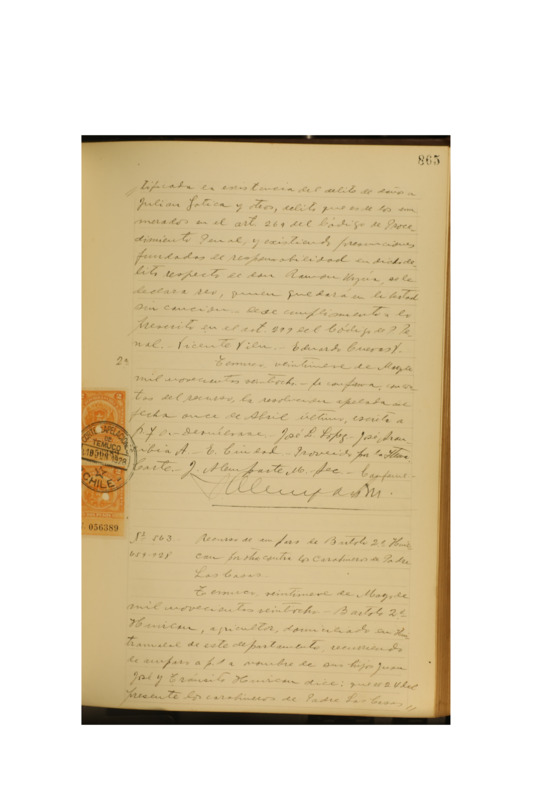 865
tificada la existencia del delito de daños a
Julian Gatica y otros, delito que es de los enu
merados en el art 269 del Código de Proce
dimiento Penal, y existiendo presunciones
fundadas de responsabilidad en dicho de
lito respecto de don Ramon se le
declara reo, quien quedara en libertad
sin caucion. Dese cumplimiento a lo
prescrito en el art 299 del Código de P. Pe
nal.- Vicente Vila.- Eduardo Cuevas V.
2a
Temuco, veintinueve de Mayo de
mil novecientos veintiocho.- Se confirma, con cos
tas del recurso, la resolucion apelada de
fecha once de Abril ultimo, escrita a
f 7 v. devuelvase. José D. Lopez - José
A - Proveido por la Iltma
Corte.- J. Alemparte M. Sec - Conforme.-
CORTE APELACIONES
DE
TEMUCO
1928
CHILE
056389
No. 863
Recurso de amparo de Bartolo 2o
contra los carabineros de Padre
Las Casas
Temuco, veintinueve de Mayo de
mil novecientos veintiocho - Bartolo 2o
, agricultor, domiciliado en
de este departamento, recurriendo
de amparo a f. 1 a nombre de sus hijos Juan
José y Tránsito dice; que el 24 del
presente los carabineros de Padre Las Casas,